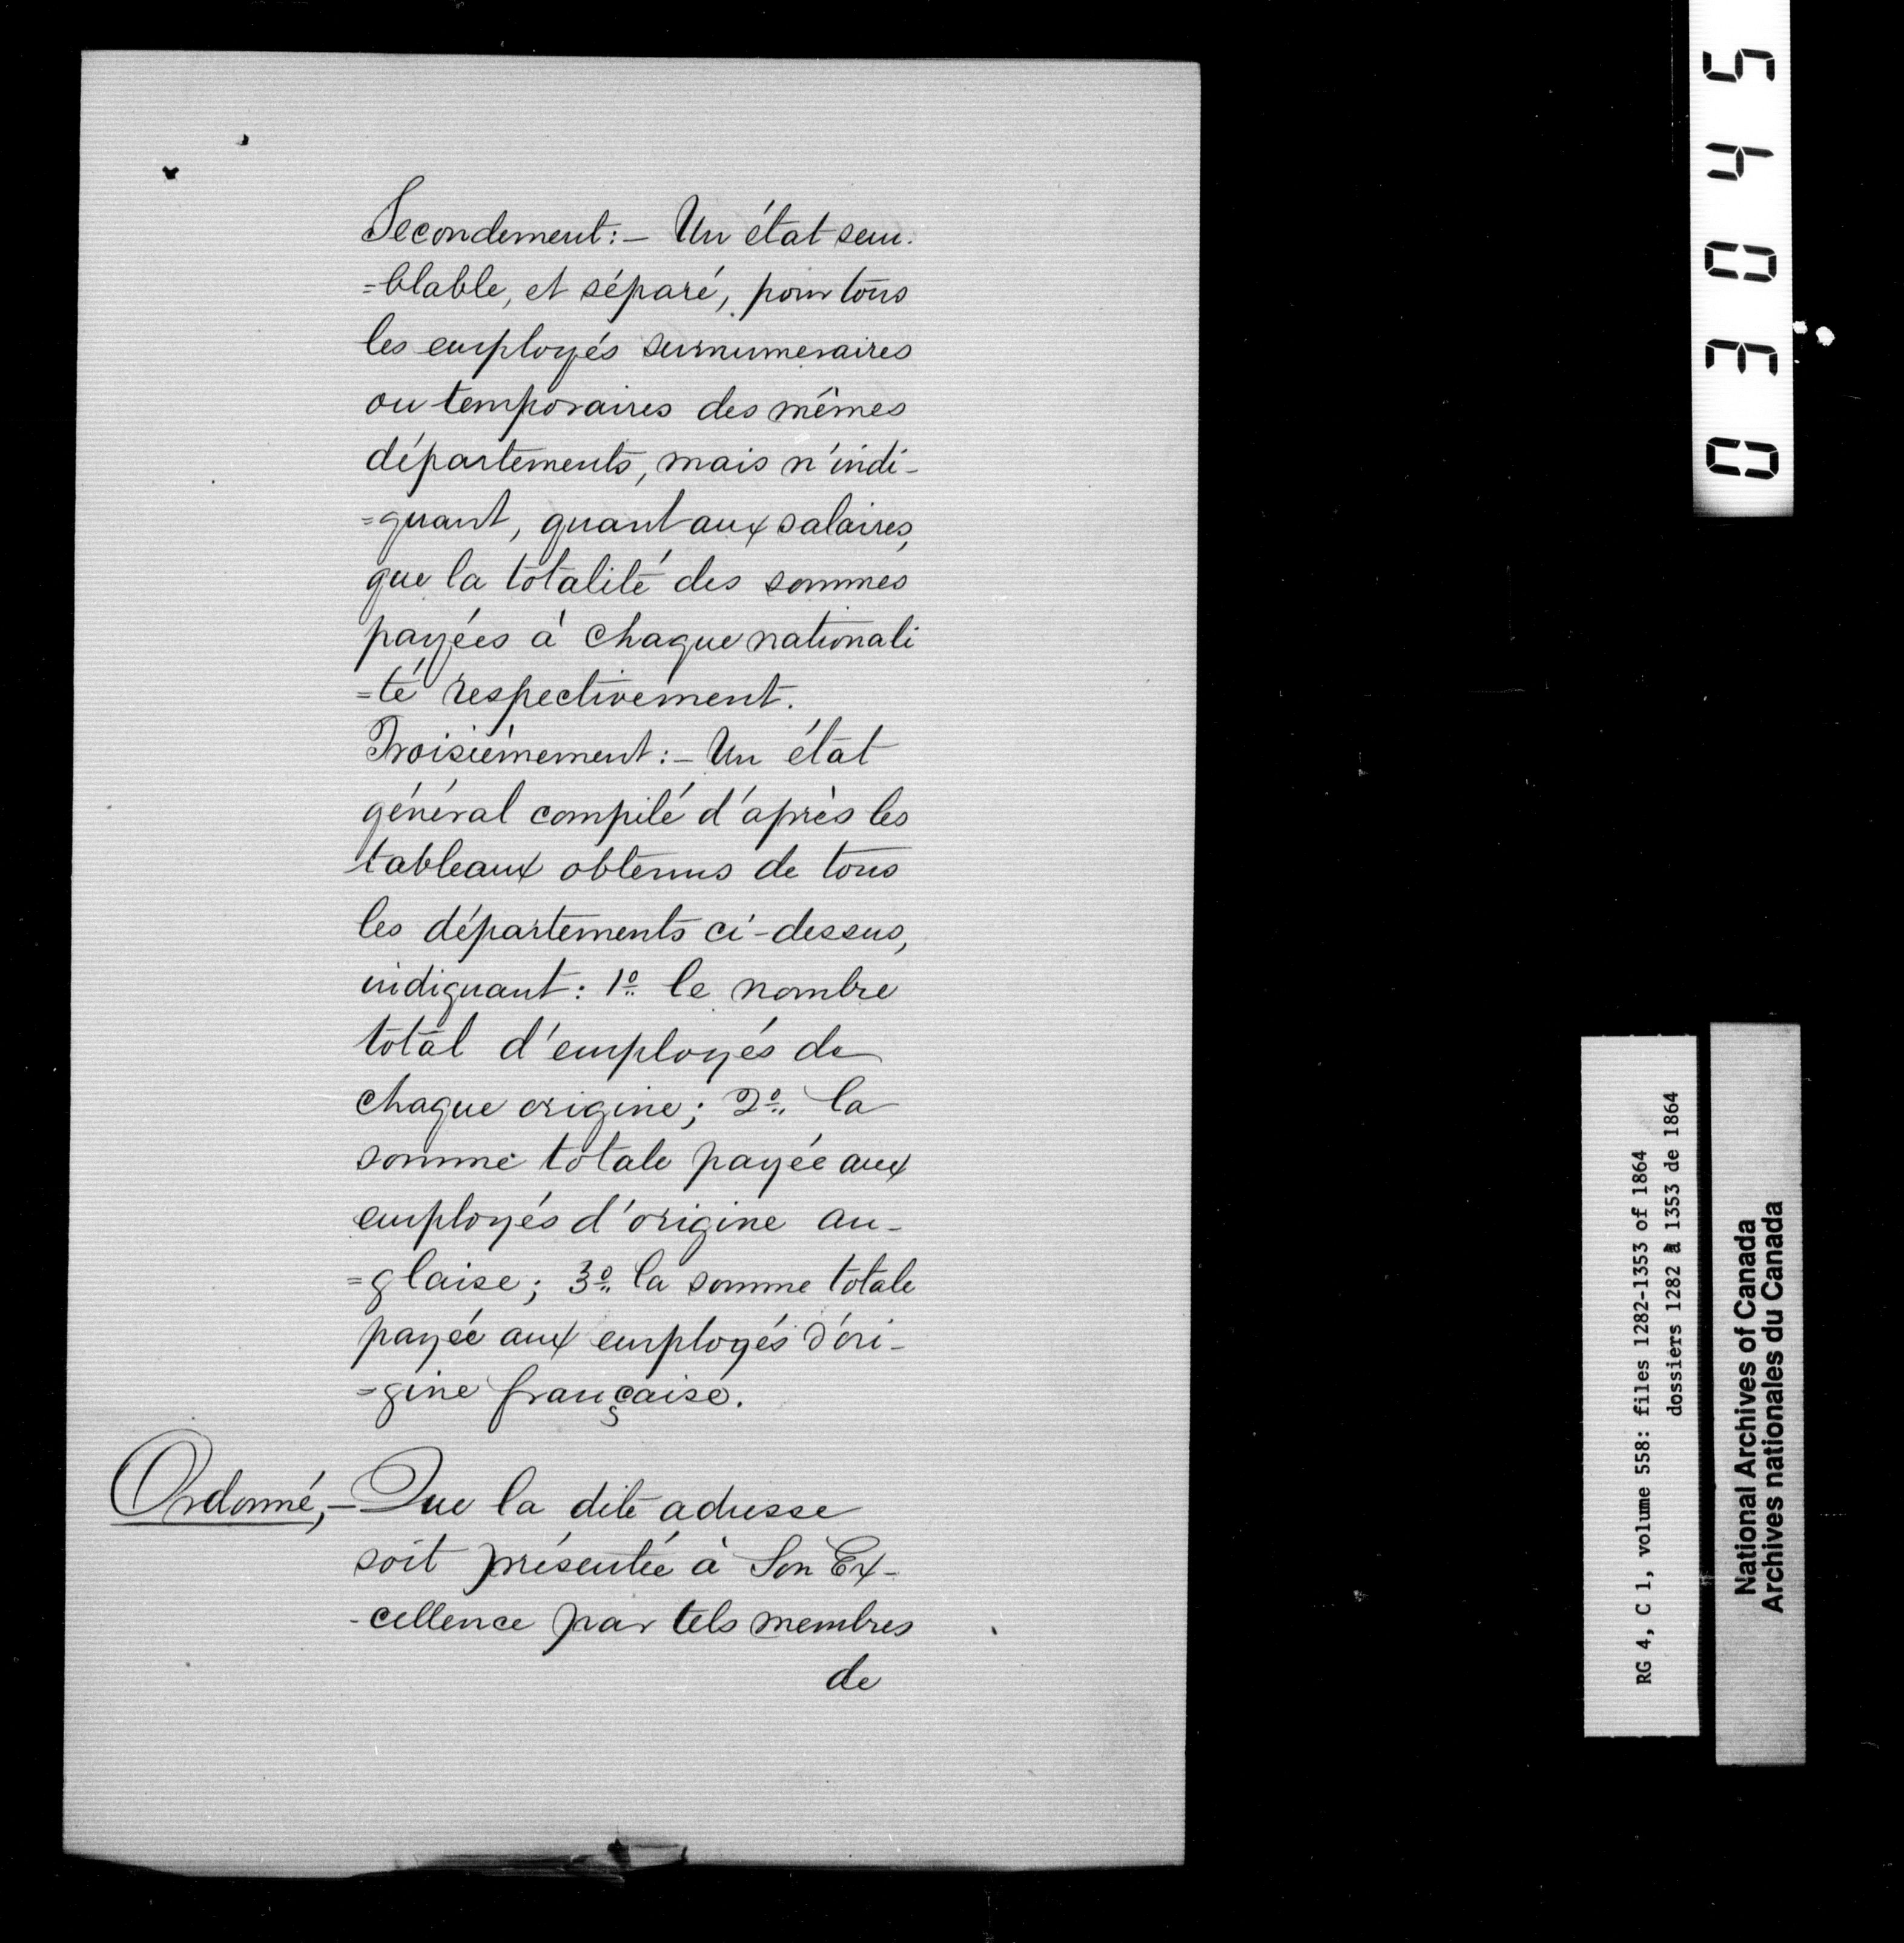 Secondement:- Un état sem-
=blable, et séparé, pour tous
les employés surnumeraires
ou temporaires des mêmes
départements, mais n'indi-
=quant, quant aux salaires,
que la totalité des sommes
payées à chaque nationali
=té respectivement.
Troisièmement:- Un état
général compilé d'après les
tableaux obtenus de tous
les départements ci-dessus,
indiquant: 1º le nombre
total d'employés de
chaque origine; 2º la
somme totale payée aux
employés d'origine an-
=glaise; 3º la somme totale
payée aux employés d'ori-
=gine française.
Ordonné,- Que la dite adresse
soit présentée à Son Ex-
-cellence par tels membres
de
03045
RG 4, C 1, volume 558: files 1282-1353 of 1864
dossiers 1282 à 1353 de 1864
National Archives of Canada
Archives nationales du Canada